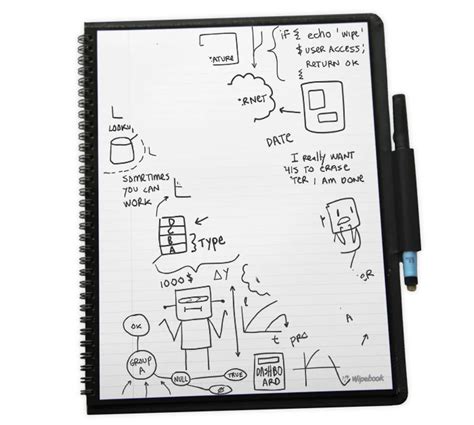 if { echo 'wipe'
$ USER ACCESS;
RETURN OK
{
ATURE
.RNET
DATE
L
LOOKU,
SOMETIMES
YOU CAN
WORK
L
I really WANT
HIS TO ERASE
TER I AM DONE
D
C
B
A
} TYPE
OR
1000 $
ΔY
OK
GROUP
A
NULL
TRUE
t
PRC
A
DASHBO
ARD
Wipebook